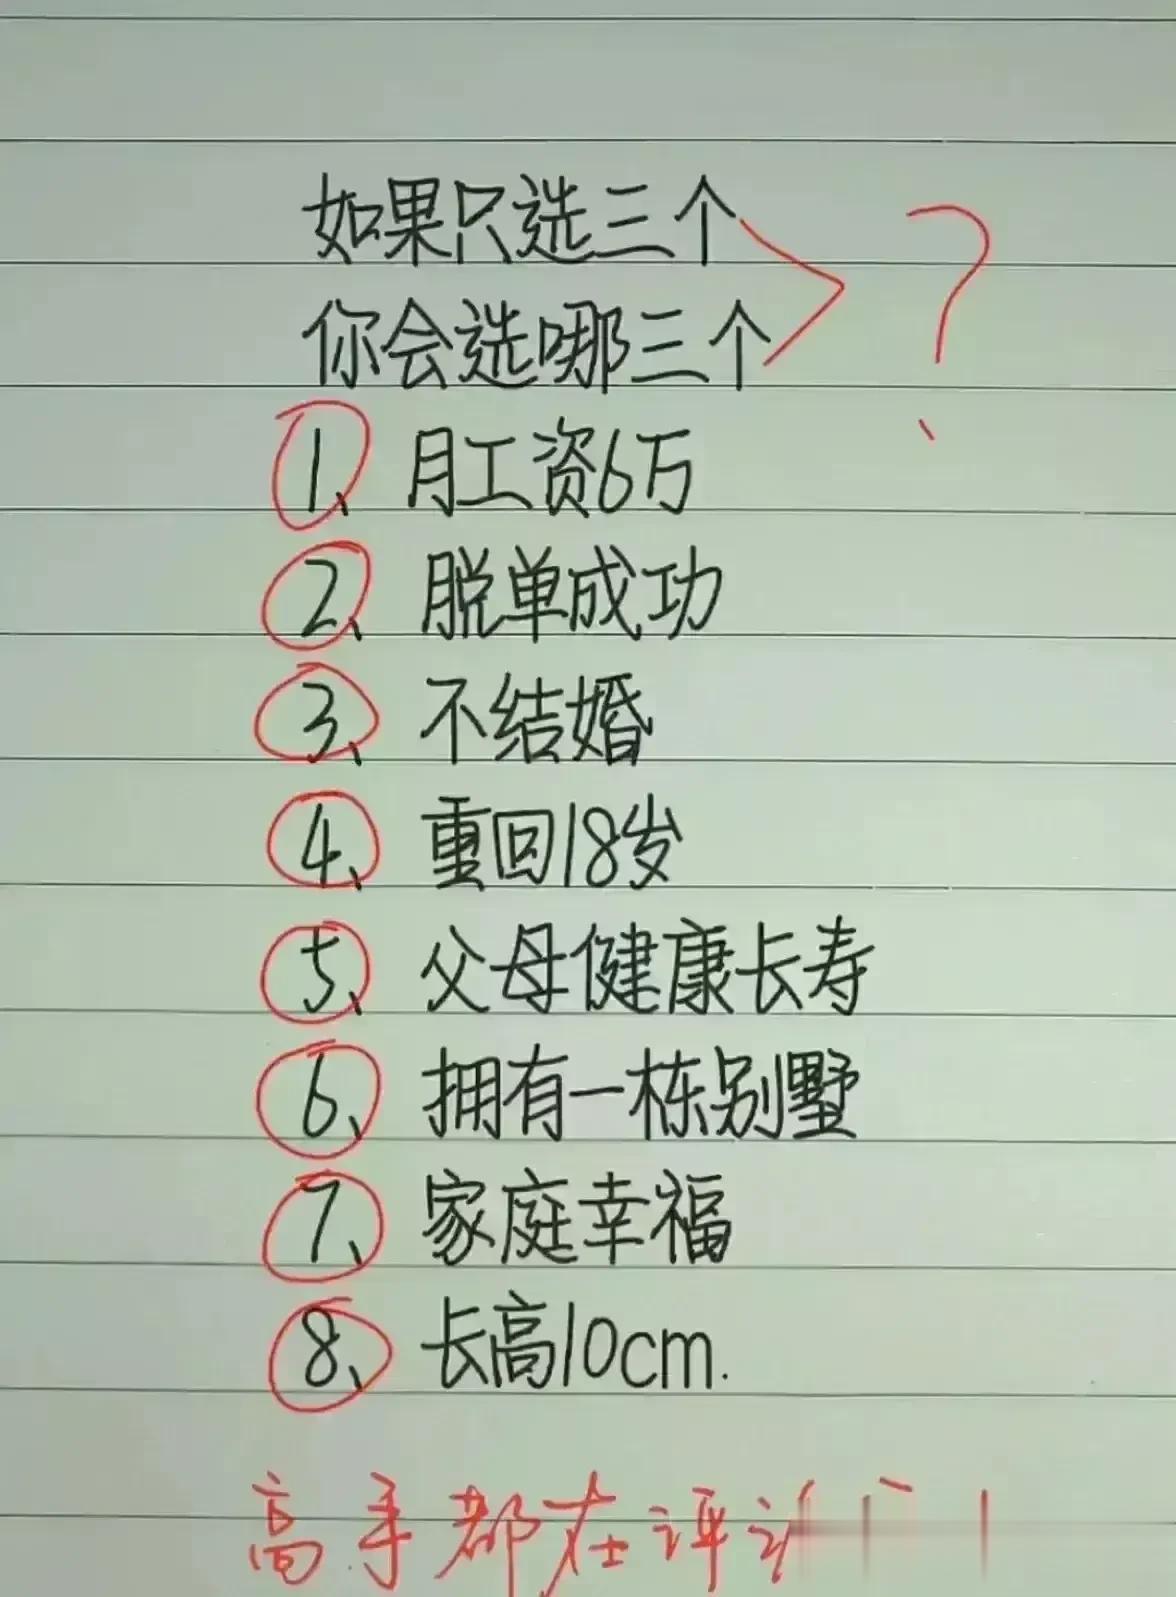 如果只选三个
你会选哪三个 ?
1、月工资6万
2、脱单成功
3、不结婚
4、重回18岁
5、父母健康长寿
6、拥有一栋别墅
7、家庭幸福
8、长高10cm.
高手都在评